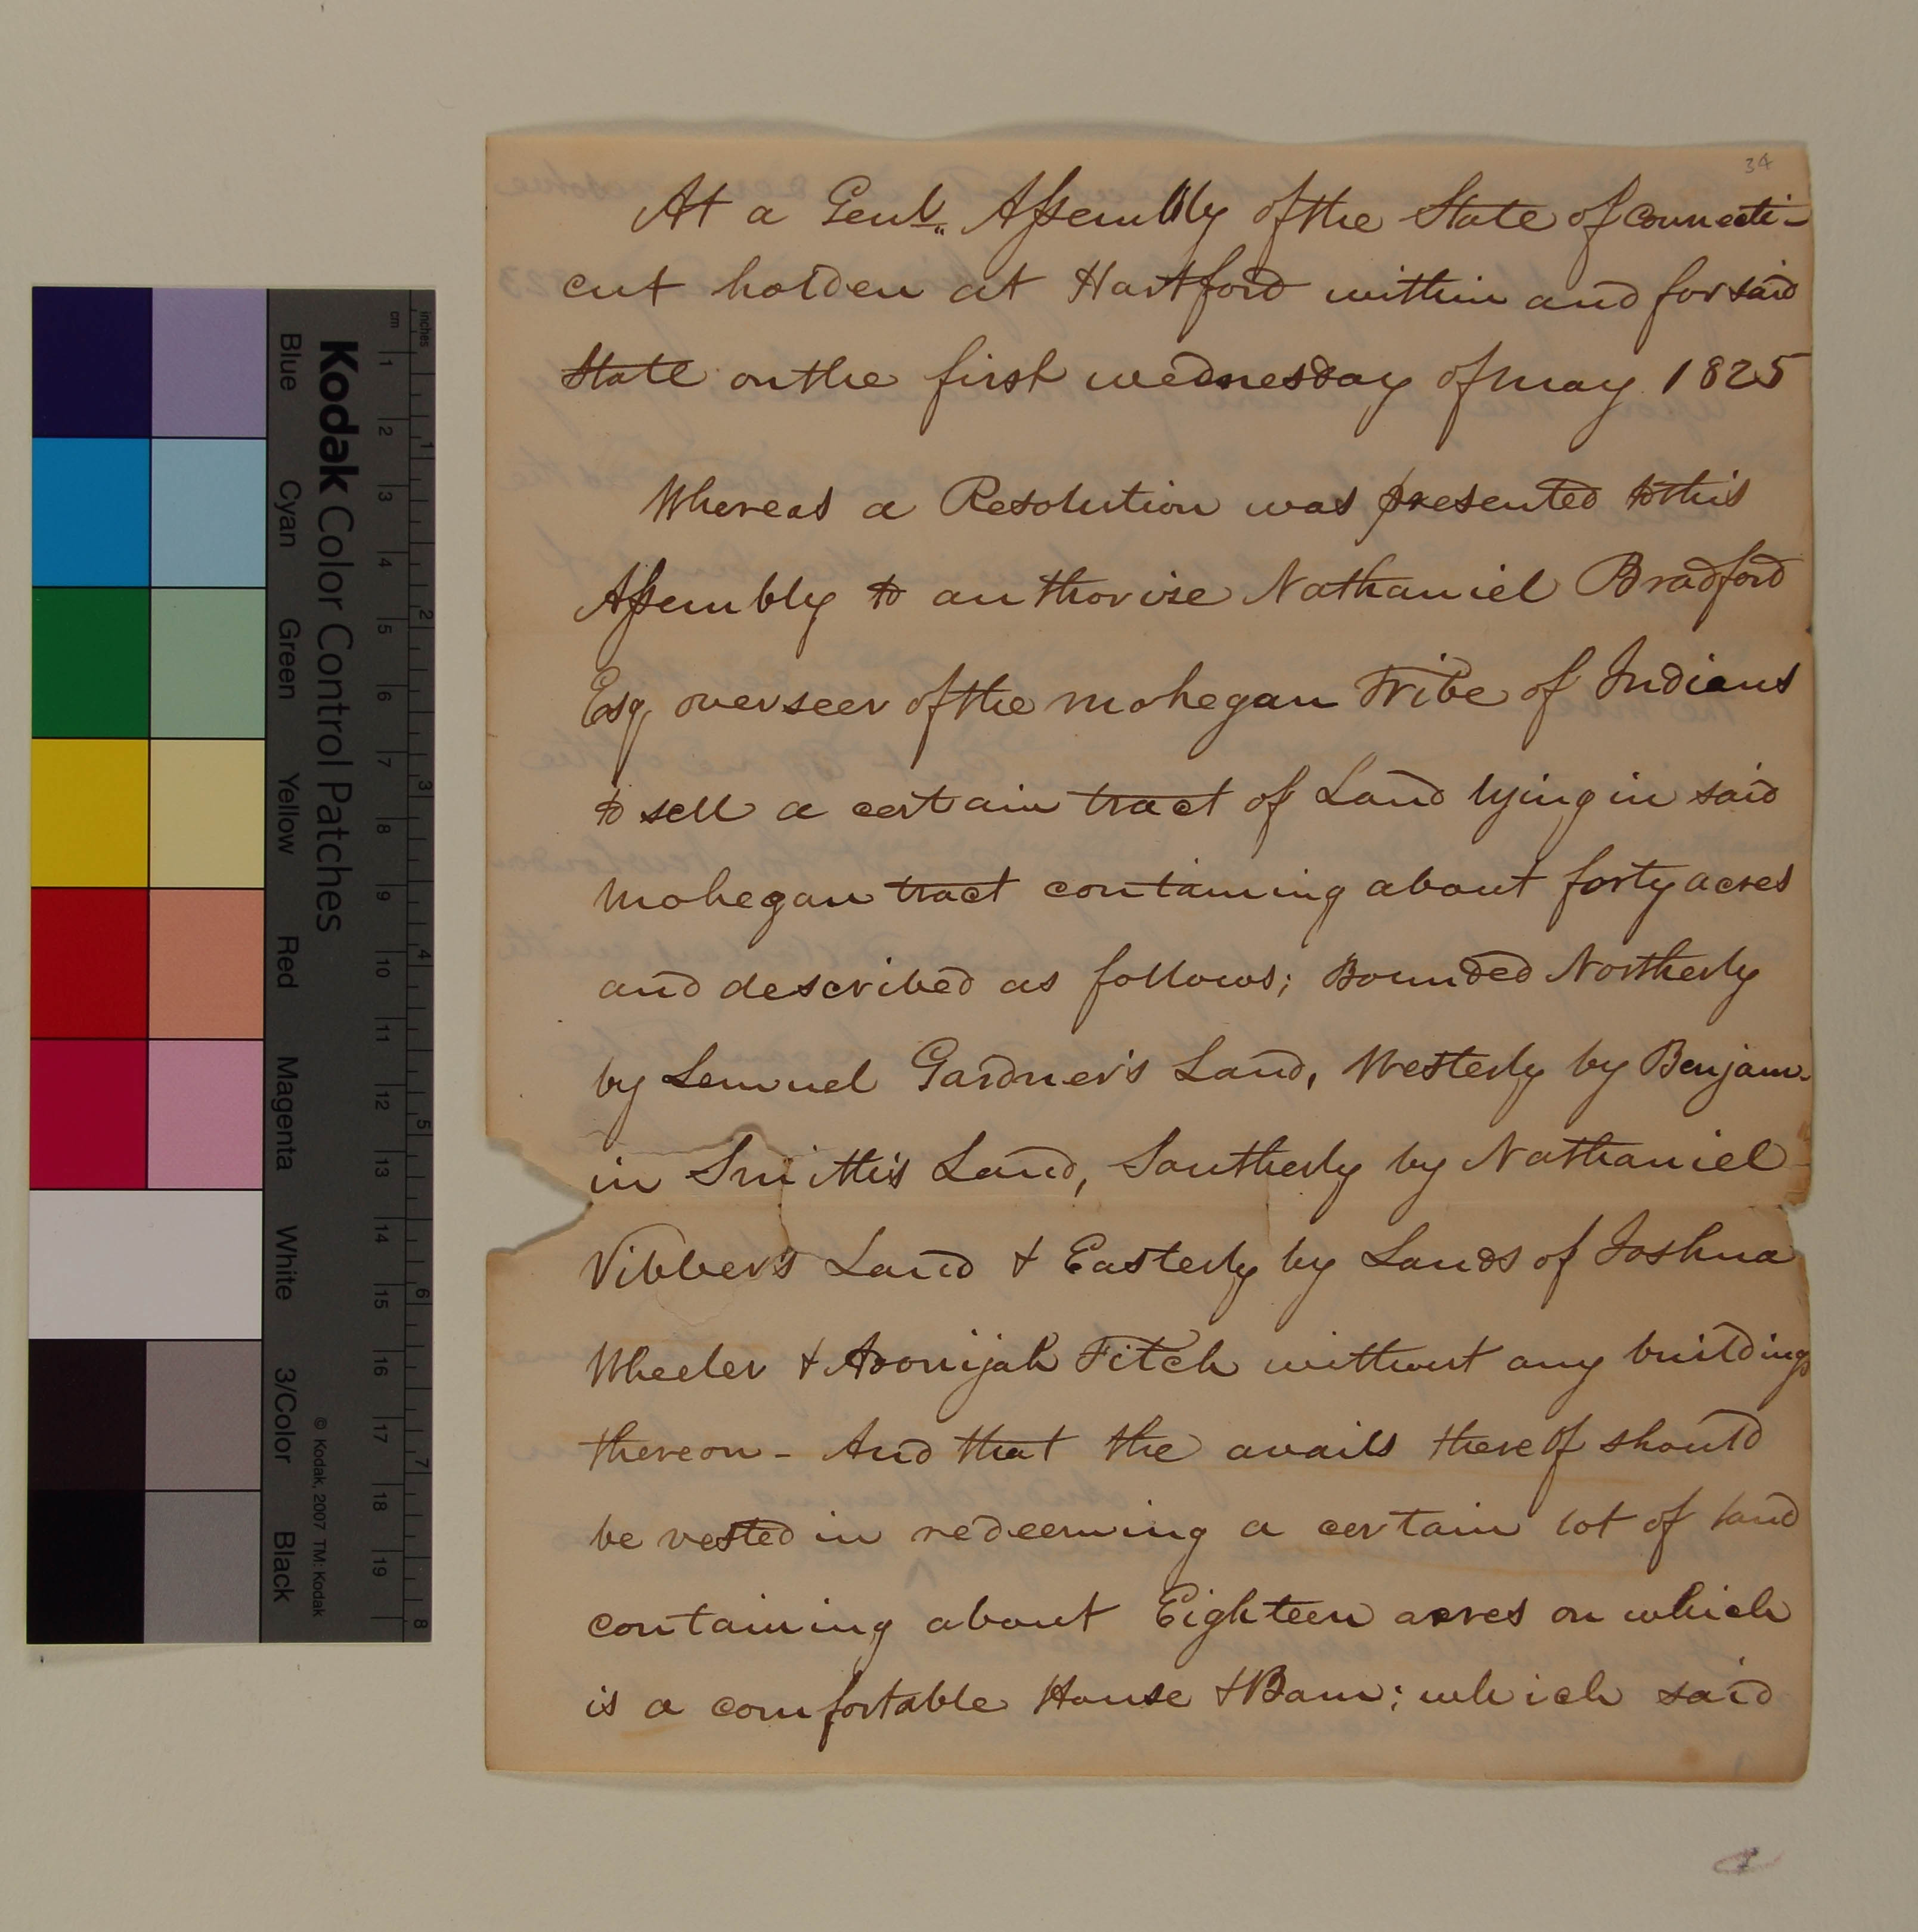 34
At a Genl. Assembly of the State of Connecti-
cut holden at Hartford within and for said
State on the first wednesday of may 1825
Whereas a Resolution was presented to this
Assembly to authorise Nathaniel Bradford
Esq overseer of the mohegan Tribe of Indians
to sell a certain tract of Land lying in said
mohegan tract containing about forty acres
and described as follows; Bounded Northerly
by Lemuel Gardner's Land, Westerly by Benjam-
in Smith's Land, Southerly by Nathaniel
Vibber's Land & Easterly by Lands of Joshua
Wheeler & Adonijah Fitch without any buildings
thereon - And that the avails thereof should
be vested in redeeming a certain lot of land
containing about Eighteen acres on which
is a comfortable House & Barn; which said
Kodak Color Control Patches
© Kodak, 2007 TM: Kodak
Blue Cyan Green Yellow Red Magenta White 3/Color Black
cm 1 2 3 4 5 6 7 8 9 10 11 12 13 14 15 16 17 18 19
inches 1 2 3 4 5 6 7 8